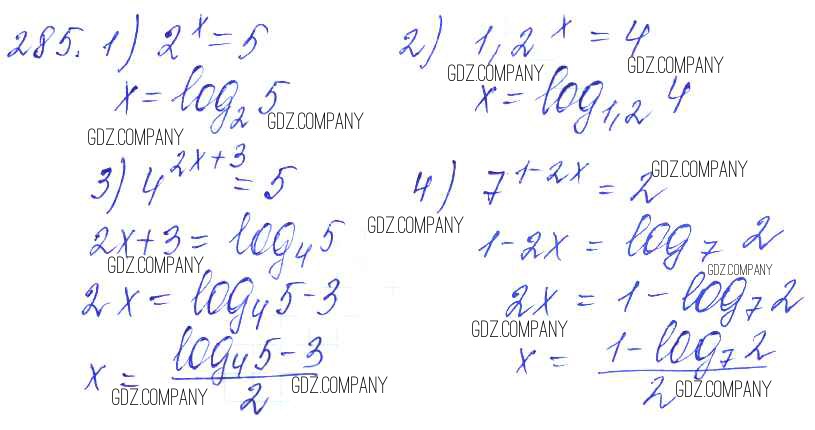 285. 1) 2^x = 5    2) 1,2^x = 4
GDZ.COMPANY    GDZ.COMPANY
x = log_2 5    x = log_{1,2} 4
GDZ.COMPANY    GDZ.COMPANY
3) 4^{2x+3} = 5    4) 7^{1-2x} = 2
GDZ.COMPANY    GDZ.COMPANY
2x+3 = log_4 5    1-2x = log_7 2
GDZ.COMPANY    GDZ.COMPANY
2x = log_4 5-3    2x = 1-log_7 2
GDZ.COMPANY
x = (log_4 5-3)/2    x = (1-log_7 2)/2
GDZ.COMPANY    GDZ.COMPANY    GDZ.COMPANY